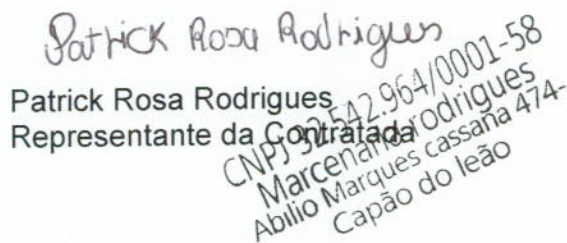 Patrick Rosa Rodrigues
Patrick Rosa Rodrigues
Representante da Contratada
CNPJ 32.542.964/0001-58
Marcenaria rodrigues
Abilio Marques cassana 474-
Capão do leão